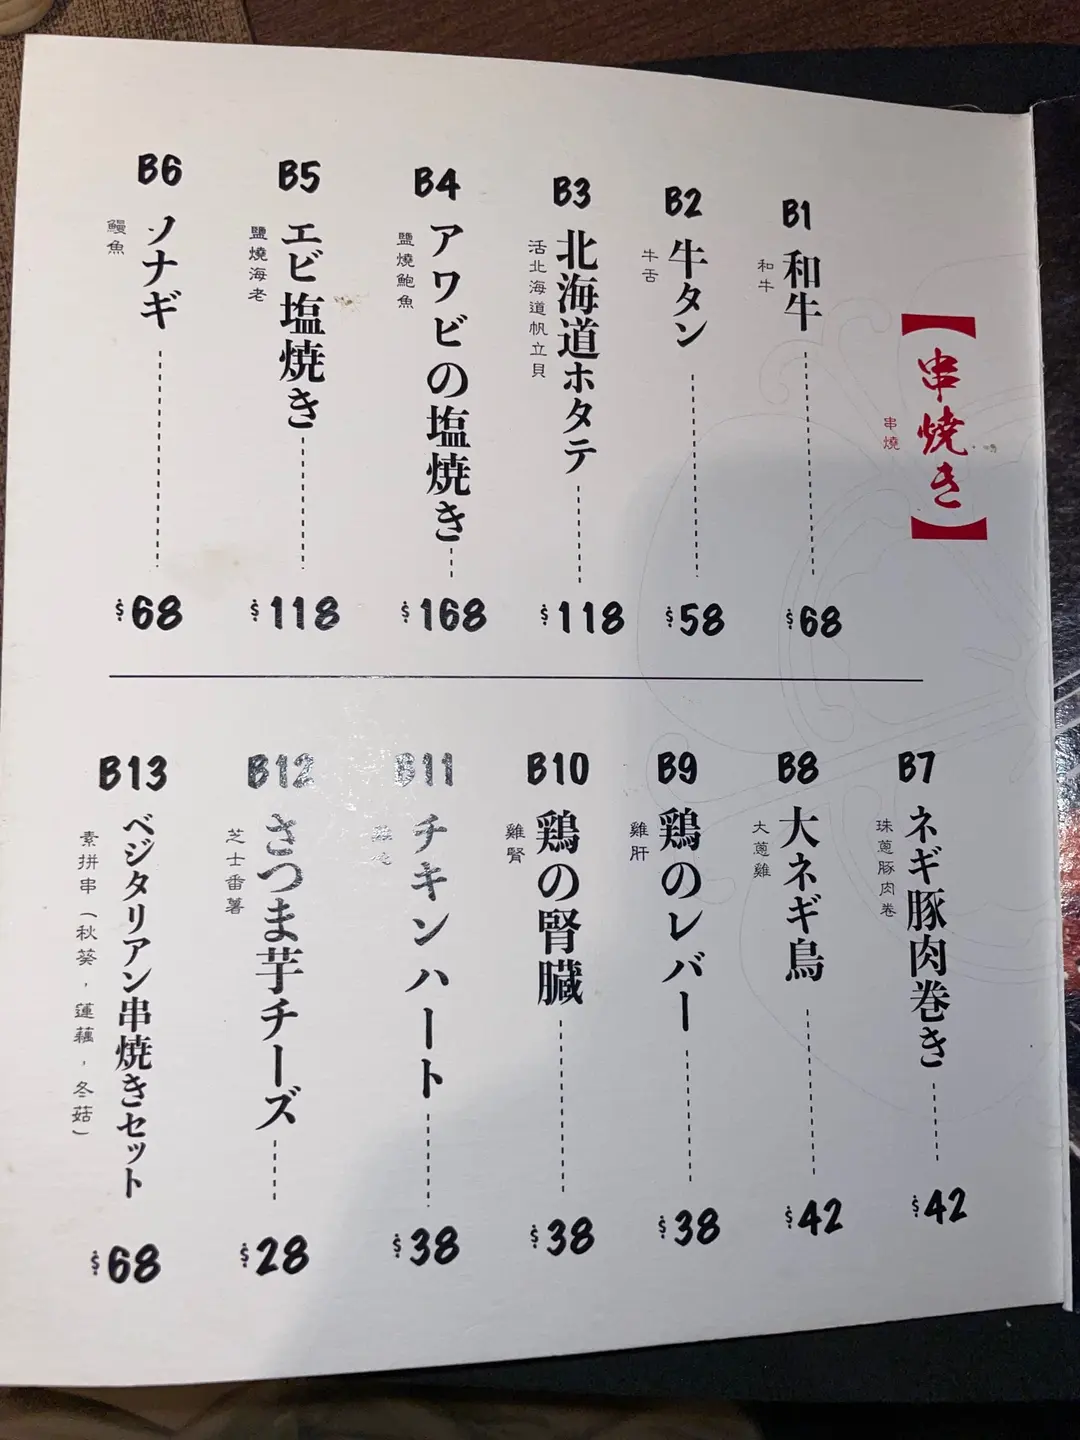 【串焼き】
串燒
B1
和牛
和牛
$68
B2
牛タン
牛舌
$58
B3
北海道ホタテ
活北海道帆立貝
$118
B4
アワビの塩焼き
鹽燒鮑魚
$168
B5
エビ塩焼き
鹽燒海老
$118
B6
ノナギ
鰻魚
$68
B7
ネギ豚肉巻き
珠蔥豚肉卷
$42
B8
大ネギ鳥
大蔥雞
$42
B9
鶏のレバー
雞肝
$38
B10
鶏の腎臓
雞腎
$38
B11
チキンハート
$38
B12
さつま芋チーズ
芝士番薯
$28
B13
ベジタリアン串焼きセット
素拼串（秋葵，蓮藕，冬菇）
$68